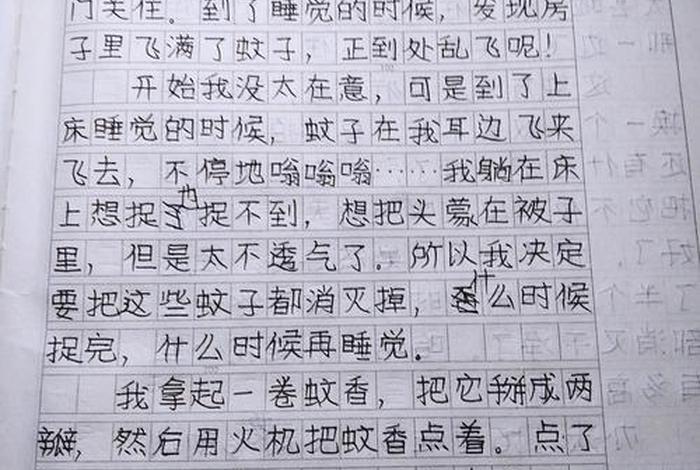 门关住。到了睡觉的时候，发现房
子里飞满了蚊子，正到处乱飞呢！
开始我没太在意，可是到了上
床睡觉的时候，蚊子在我耳边飞来
飞去，不停地嗡嗡嗡……我躺在床
上想捉也捉不到，想把头蒙在被子
里，但是太不透气了。所以我决定
要把这些蚊子都消灭掉，什么时候
捉完，什么时候再睡觉。
我拿起一卷蚊香，把它掰成两
瓣，然后用火机把蚊香点着。点了